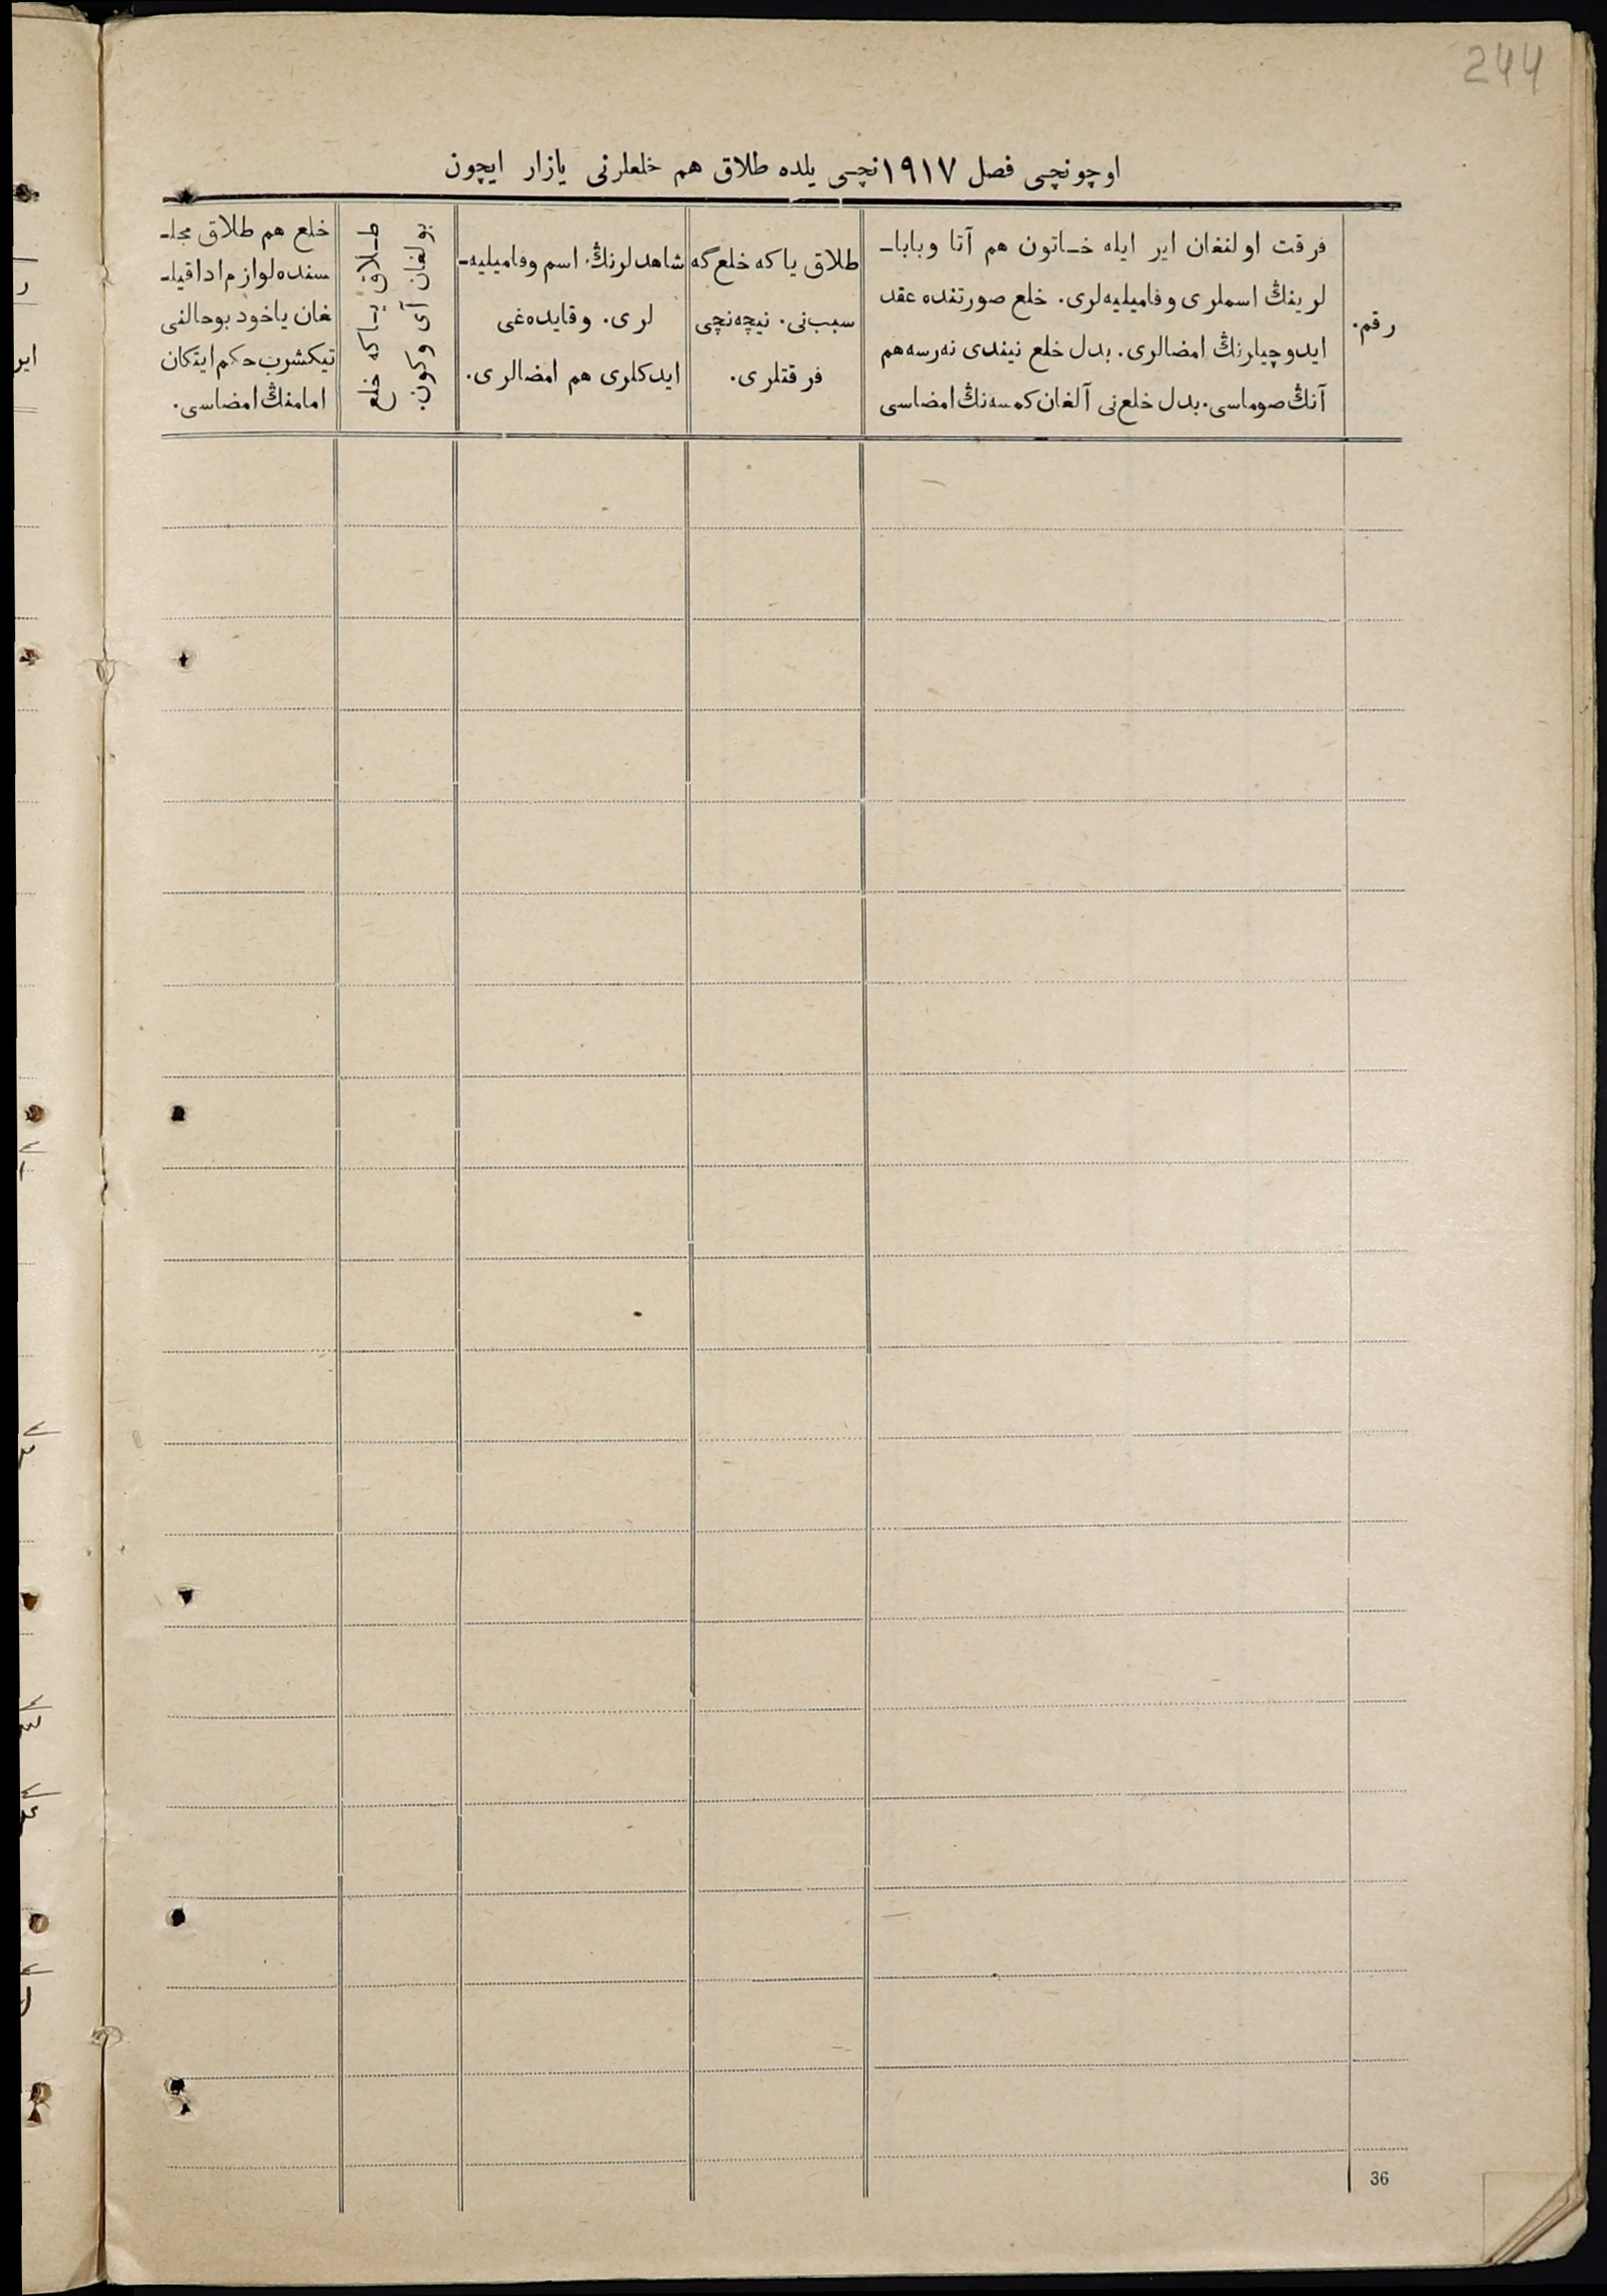 244
اوچونچی فصل ١٩١٧نچی يلده طلاق هم خلعلرنی يازار ايچون
رقم.
فرقت اولنغان اير ايله خاتون هم آتا وبابا-
لرينڭ اسملری وفاميليه‌لری. خلع صورتنده عقد
ايدوچيلرنڭ امضالری. بدل خلع نيندی نه‌رسه هم
آنڭ صوماسی. بدل خلع‌نی آلغان كمسه‌نڭ امضاسی
طلاق ياكه خلع‌گه
سبب‌نی. نيچه‌نچی
فرقتلری.
شاهدلرنڭ اسم وفاميليه-
لری. وقايده‌غی
ايدكلری هم امضالری.
طلاق ياكه خلع
بولغان آی وكون.
خلع هم طلاق مجلـ-
سنده لوازم ادا قيلـ-
غان ياخود بوحالنی
تيكشرب حكم ايتكان
امامنڭ امضاسی.
36